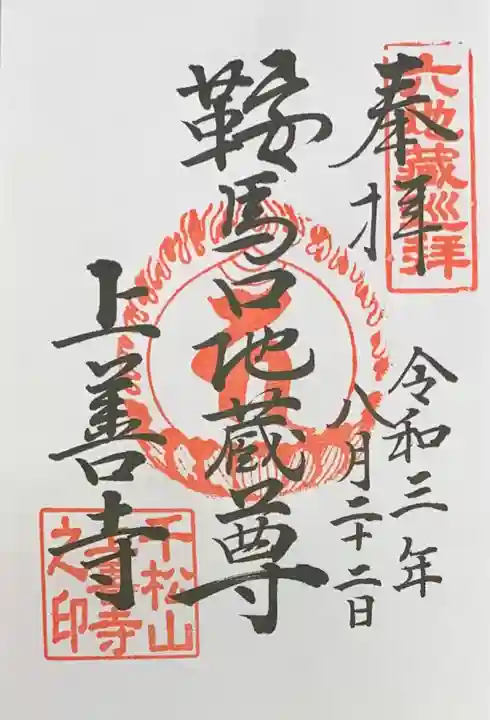 奉拝
六地蔵巡拝
令和三年
八月二十二日
鞍馬口地蔵尊
上善寺
千松山
上善寺
之印